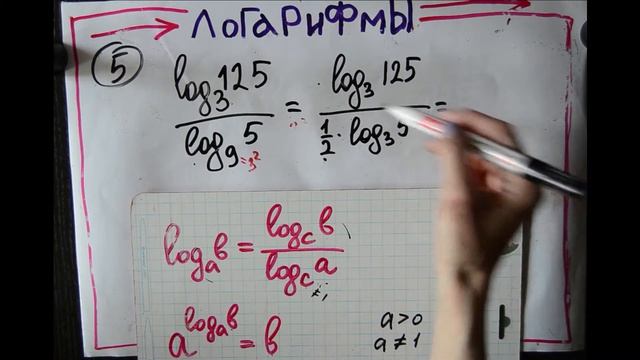 ЛОГАРИФМЫ
5
log₃125 / log₉5 = log₃125 / (1/2 · log₃5) =
9=3²
logₐb = log_c b / log_c a
a^(logₐb) = b
a>0
a≠1